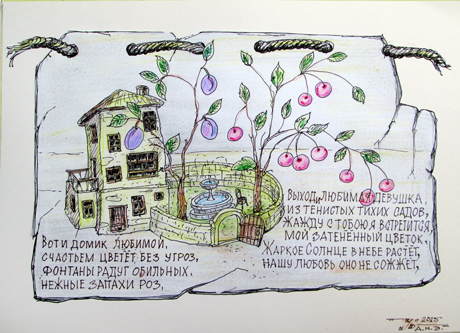 Вот и домик любимой,
счастьем цветёт без угроз,
фонтаны радуг обильных.
нежные запахи роз,
Выходи, любимая девушка,
из тенистых тихих садов,
жажду с тобою я встретится,
мой затенённый цветок,
Жаркое Солнце в небе растёт,
нашу любовь оно не сожжёт,